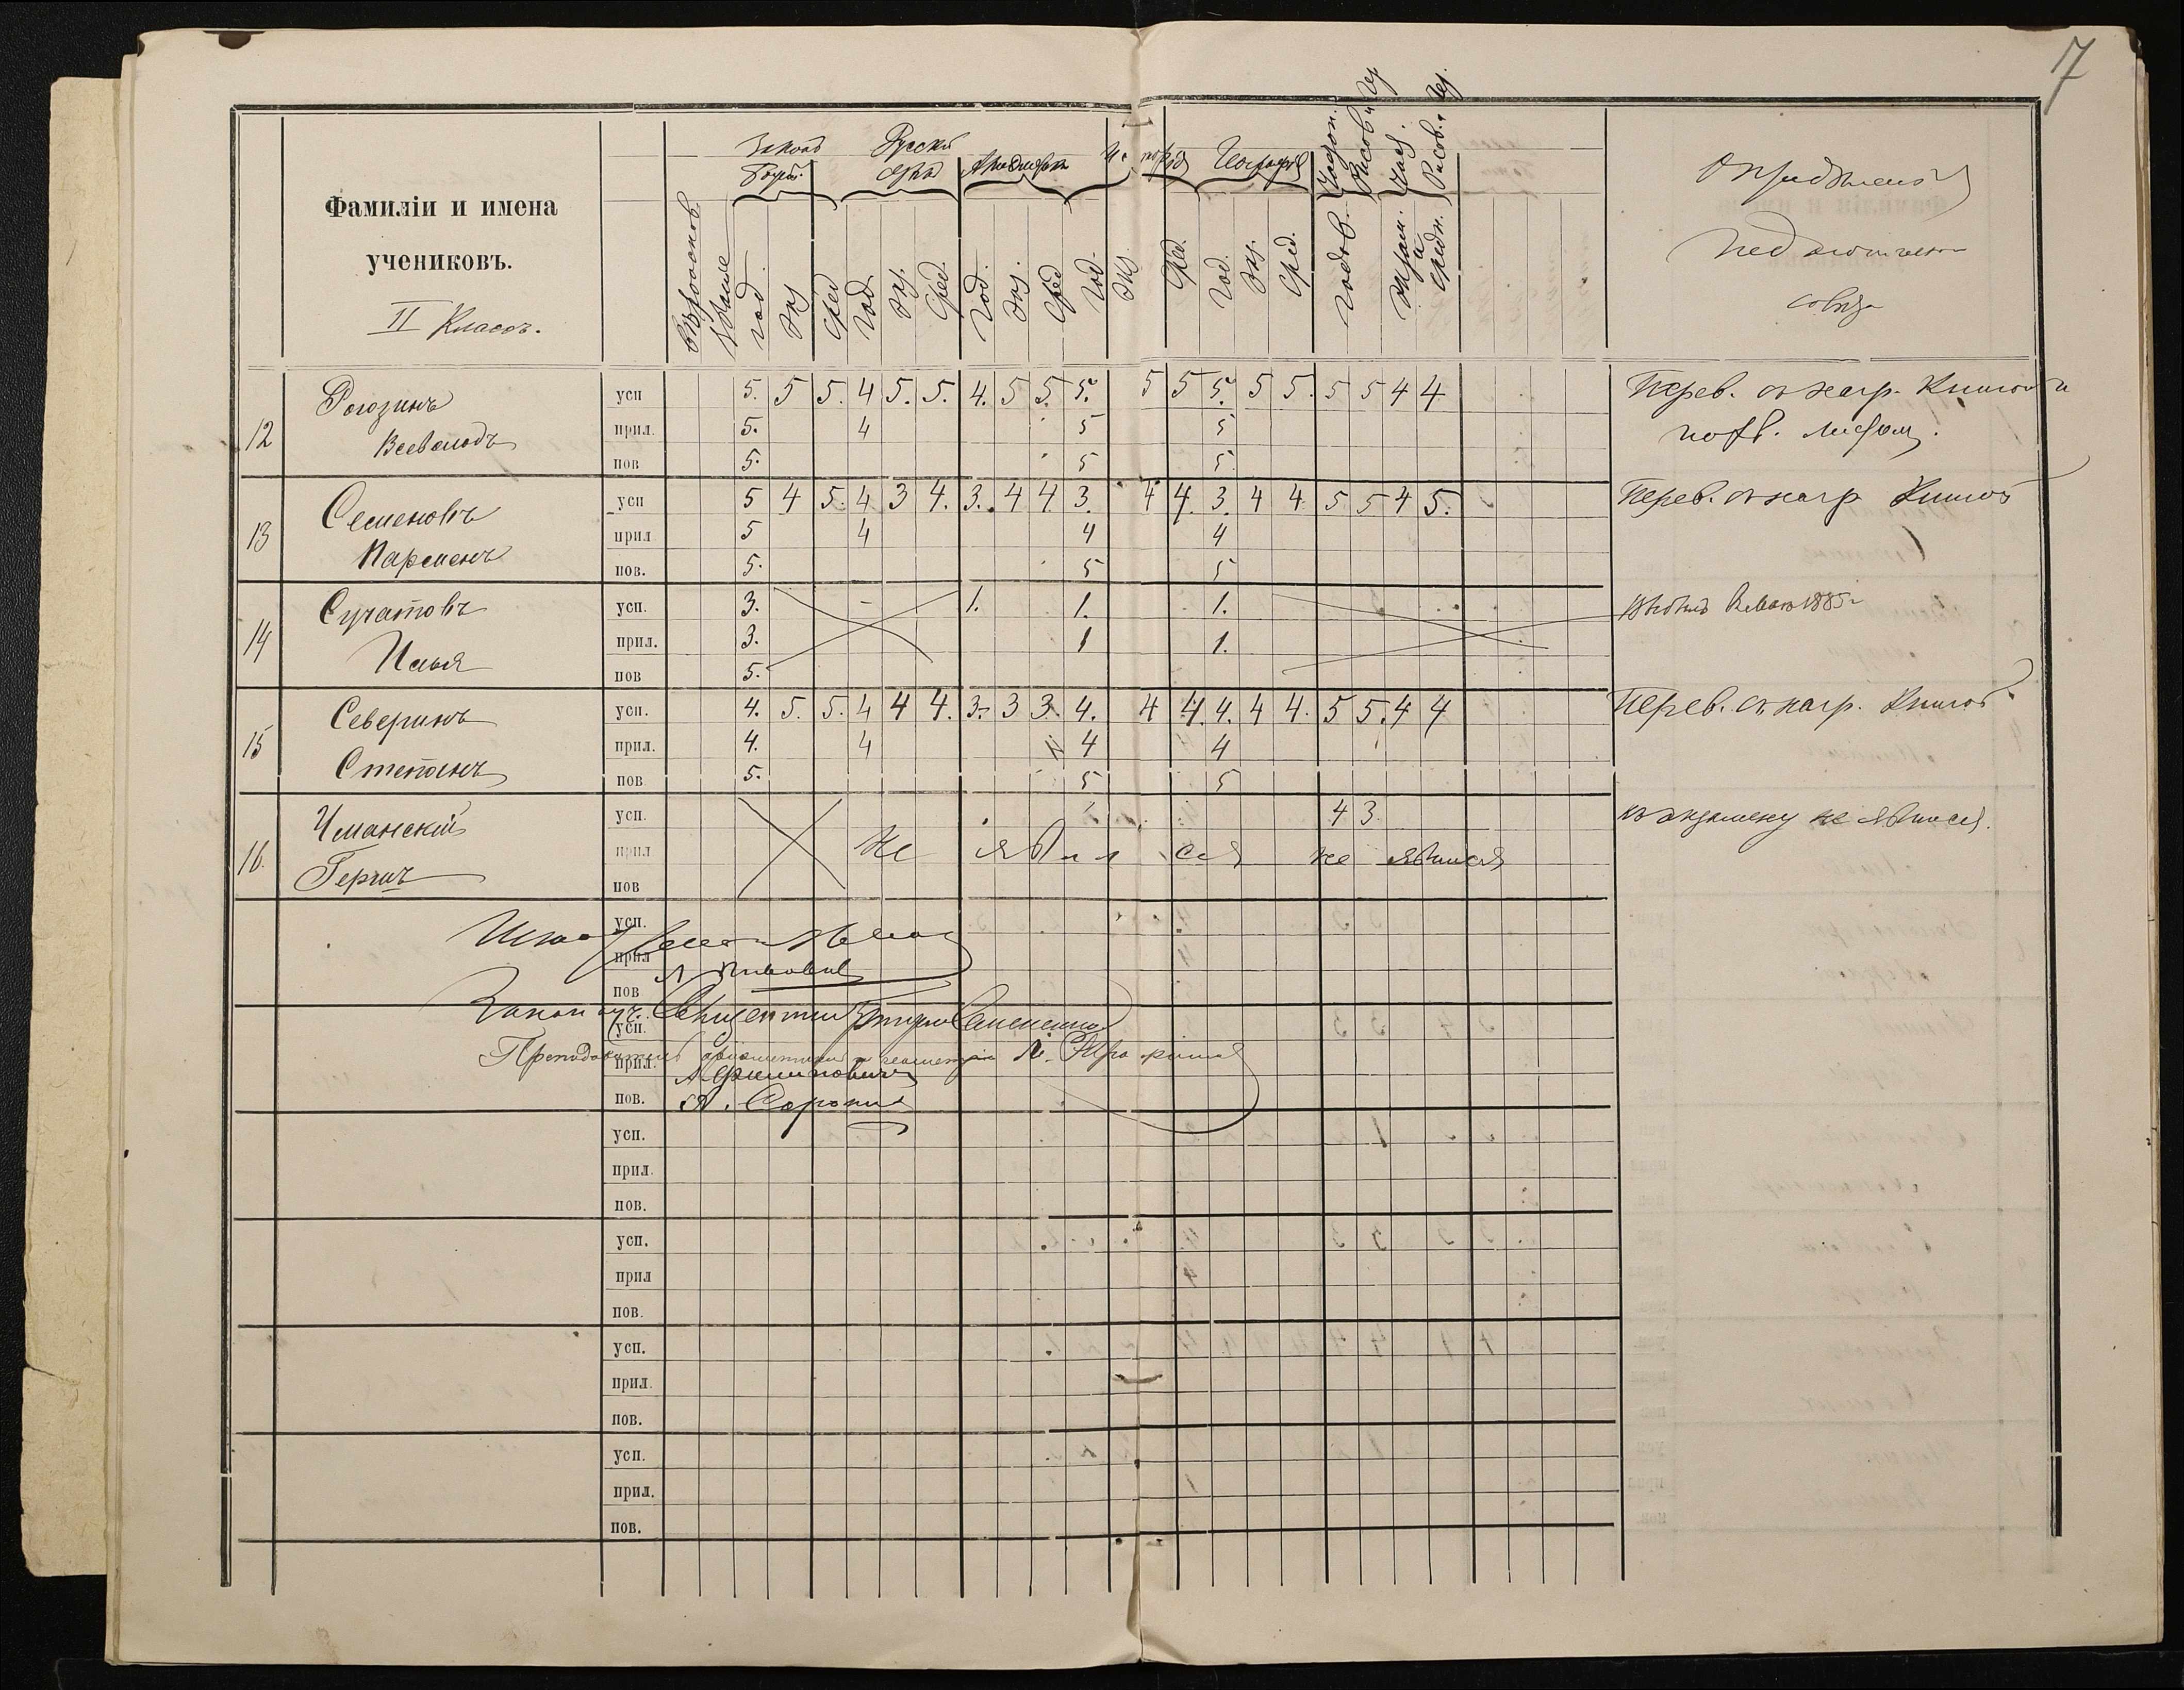 7
Фамиліи и имена
учениковъ.
II Классъ.
Законъ Русскій
Божій. языкъ Арифметика Исторія Географія
год экз сред год экз. сред. год. экз. сред год. экз сред. год. экз. сред. годов. экзам. средн.
Опредѣленія
Педагогическаго
совѣта
12 Рогозинъ усп 5. 5 5. 4 5. 5. 4. 5 5. 5. 5 5 5. 5 5. 5 5 4 4 Перев. съ нагр. Книгой и
Всеволодъ прил. 5. 4 5 5 похв. листомъ.
пов 5. 5 5.
13 Семеновъ усп 5 4 5. 4 3 4. 3. 4 4. 3. 4 4. 3. 4 4 5 5 4 5. Перев. съ нагр Книгой
Парменъ прил 5 4 4 4
пов. 5. 5 5
14 Сучатовъ усп. 3. 1. 1. 1. 1885
Илья прил. 3. 1 1.
пов 5.
15 Северинъ усп. 4. 5. 5. 4 4 4. 3. 3 3. 4. 4 4. 4. 4 4. 5 5. 4 4 Перев. съ нагр. Книгой
Степанъ прил. 4. 4 4 4
пов. 5. 5 5
16. Чманскій усп. 4 3. къ экзамену не явился.
прил Не явился не явился
пов
усп.
прил
пов
Законоуч. Священникъ
усп.
Преподаватель ариѳметики и геометріи
прил.
пов. А. Сорокинъ
усп.
прил.
пов.
усп.
прил
пов.
усп.
прил.
пов.
усп.
прил.
пов.